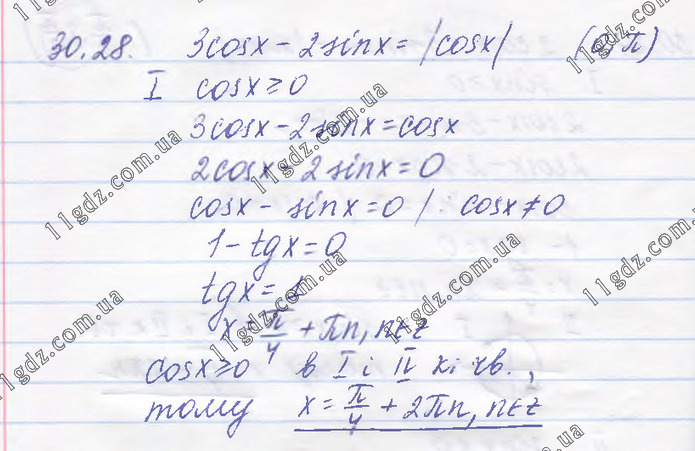 30.28. 3cosx - 2sinx = |cosx| (0; π)
I cosx ≥ 0
3cosx - 2sinx = cosx
2cosx - 2sinx = 0
cosx - sinx = 0 / : cosx ≠ 0
1 - tgx = 0
tgx = 1
x = π/4 + πn, n∈z
cosx ≥ 0 в I і IV к. чв.,
тому x = π/4 + 2πn, n∈z
11gdz.com.ua
11gdz.com.ua
11gdz.com.ua
11gdz.com.ua
11gdz.com.ua
11gdz.com.ua
11gdz.com.ua
11gdz.com.ua
11gdz.com.ua